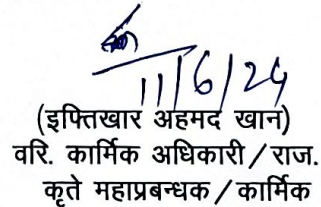 11/6/24
(इफ्तिखार अहमद खान)
वरि. कार्मिक अधिकारी / राज.
कृते महाप्रबन्धक / कार्मिक